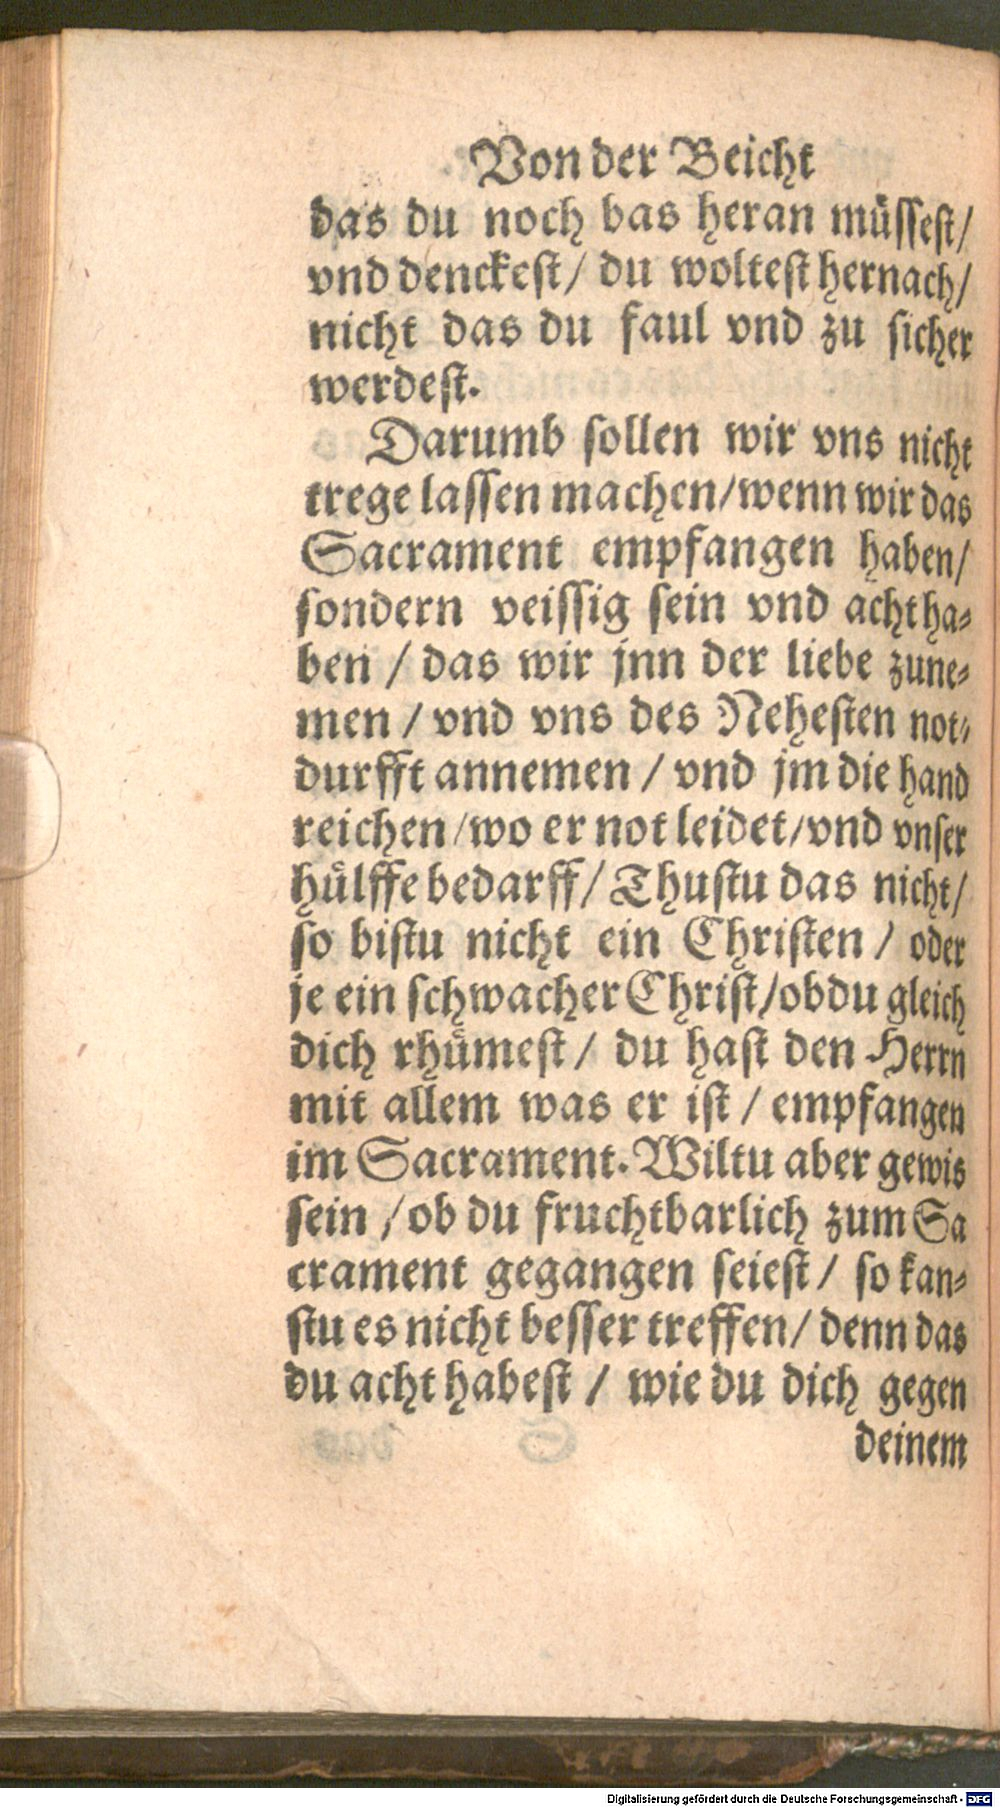 Von der Beicht
das du noch bas heran müſſeſt/
vnd denckeſt/ du wolteſt hernach/
nicht das du faul vnd zu ſicher
werdeſt.
Darumb ſollen wir vns nicht
trege laſſen machen/wenn wir das
Sacrament empfangen haben/
ſondern veiſſig ſein vnd acht ha⸗
ben / das wir jnn der liebe zune⸗
men / vnd vns des Neheſten not⸗
durfft annemen / vnd jm die hand
reichen/wo er not leidet/vnd vnſer
huͤlffe bedarff/ Thuſtu das nicht/
ſo biſtu nicht ein Chriſten / oder
je ein ſchwacher Chriſt/ob du gleich
dich rhuͤmeſt / du haſt den Herrn
mit allem was er iſt / empfangen
im Sacrament. Wiltu aber gewis
ſein / ob du fruchtbarlich zum Sa
crament gegangen ſeieſt / ſo kan⸗
ſtu es nicht beſſer treffen/ denn das
du acht habeſt / wie du dich gegen
deinem
Digitalisierung gefördert durch die Deutsche Forschungsgemeinschaft - DFG